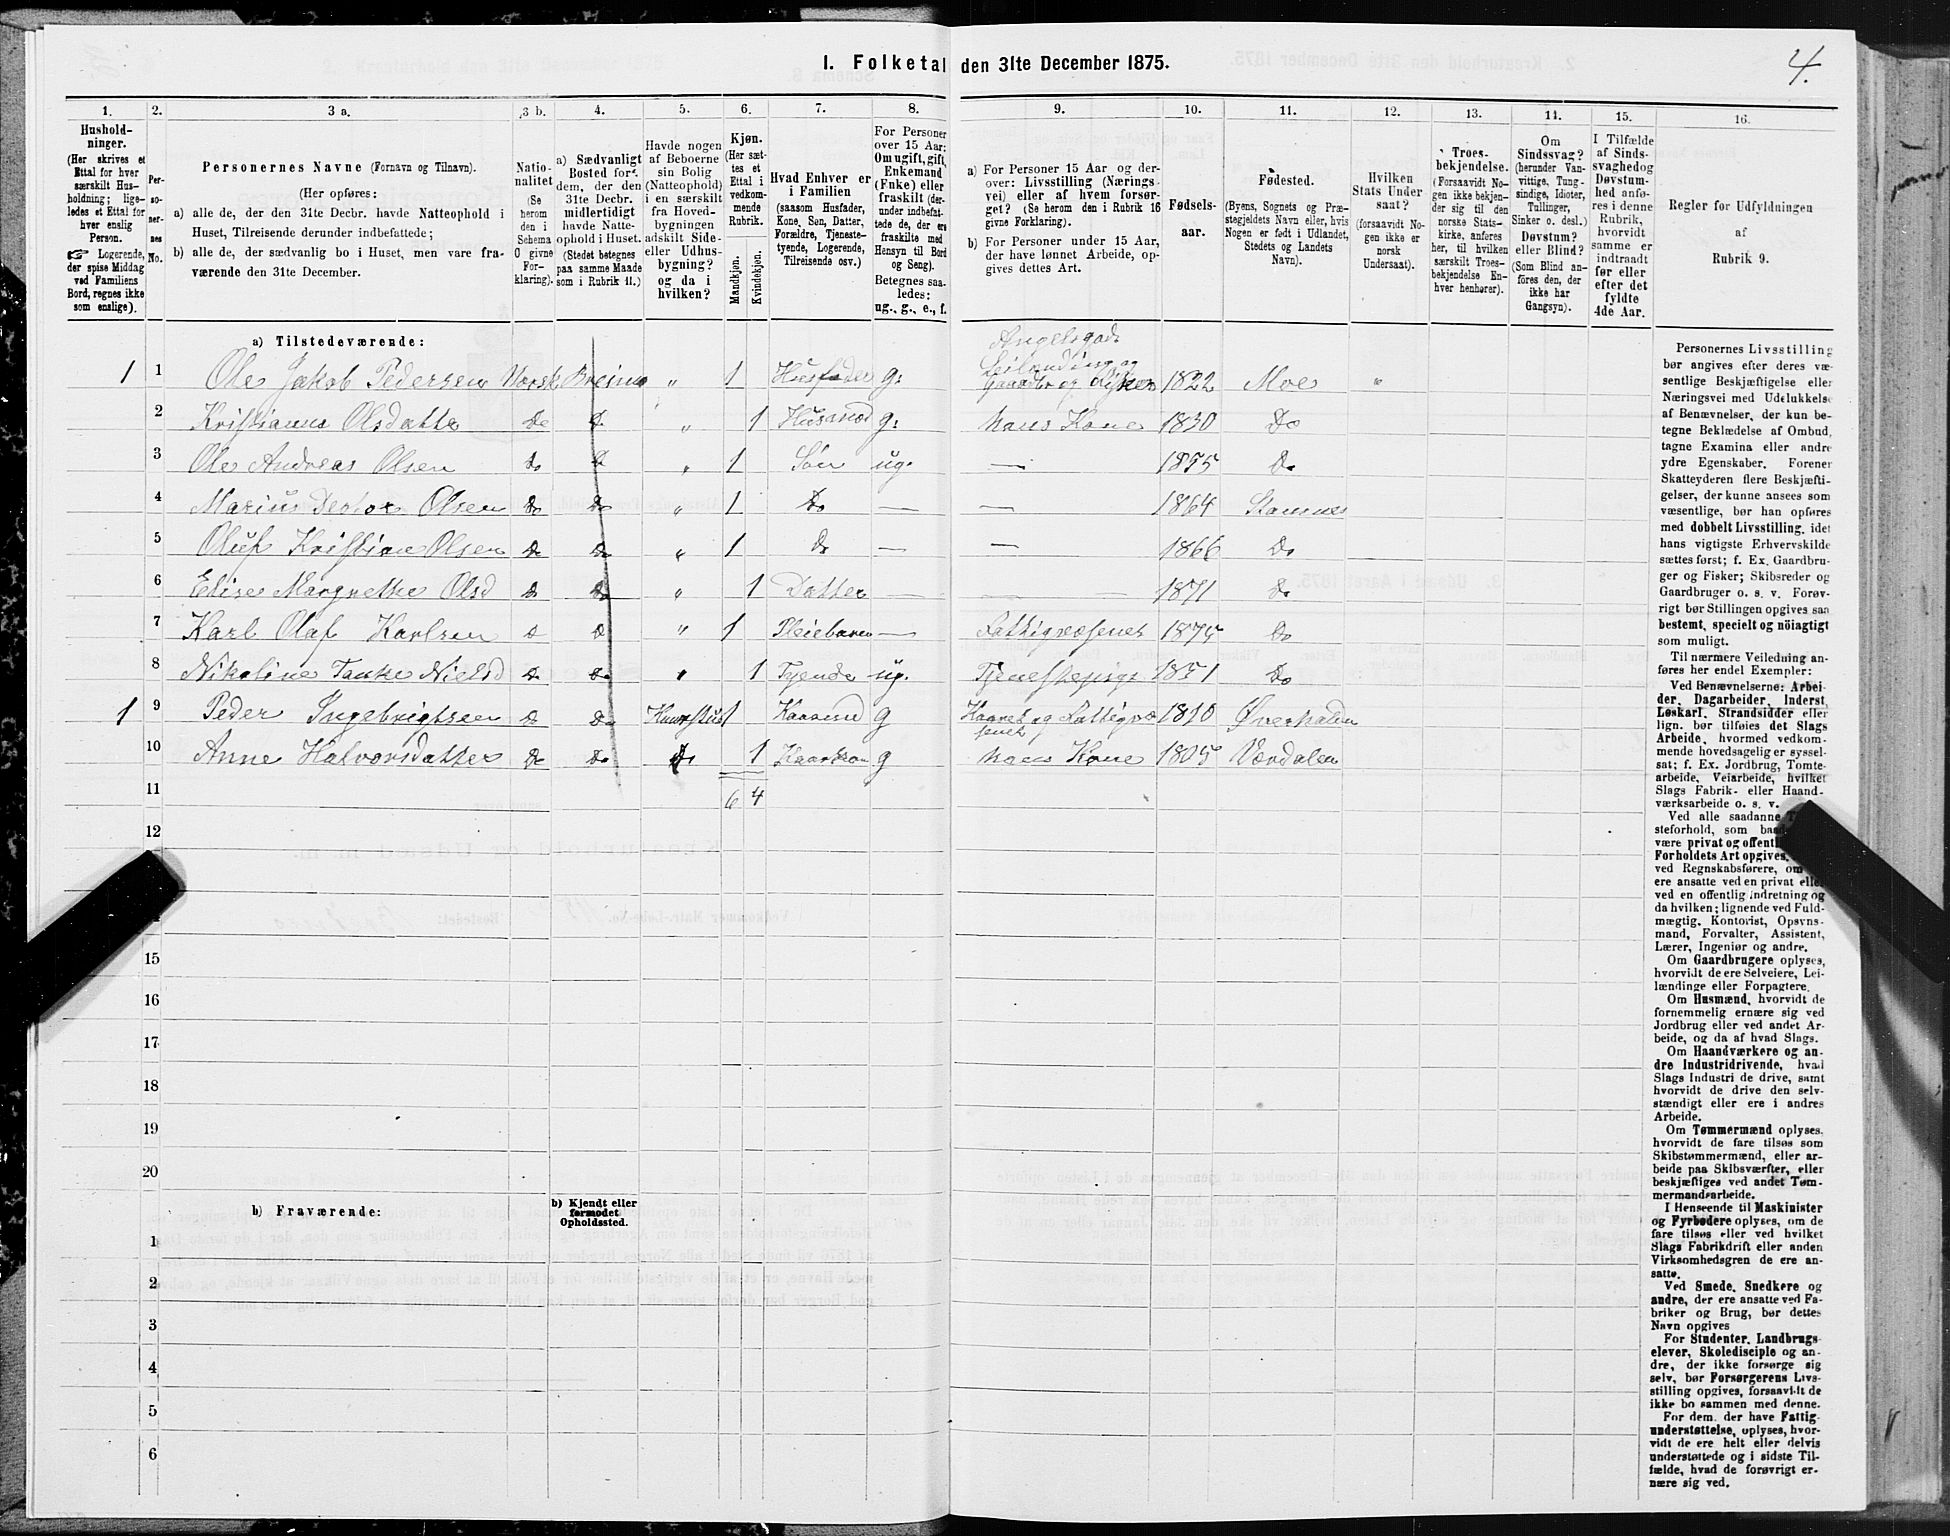 4.
I. Folketal den 31te December 1875.
1.
2.
3 a.
3 b.
4.
5.
6.
7.
8.
9.
10.
11.
12.
13.
14.
15.
16.
Hushold-
ninger.
(Her skrives et
Ettal for hver
særskilt Hus-
holdning; lige-
ledes et Ettal for
hver enslig
Person.
☞ Logerende,
der spise Middag
ved Familiens
Bord, regnes ikke
som enslige).
Per-
so-
ner-
nes
No.
Personernes Navne (Fornavn og Tilnavn).
(Her opføres:
a) alle de, der den 31te Decbr. havde Natteophold i
Huset, Tilreisende derunder indbefattede;
b) alle de, der sædvanlig bo i Huset, men vare fra-
værende den 31te December.
Natio-
nalitet
(Se
herom
den i
Schema
O givne
For-
klaring).
a) Sædvanligt
Bosted for
dem, der den
31te Decbr.
midlertidigt
havde Natte-
ophold i Huset.
(Stedet betegnes
paa samme Maade
som i Rubrik 11.)
Havde nogen
af Beboerne
sin Bolig
(Natteophold)
i en særskilt
fra Hoved-
bygningen
adskilt Side-
eller Udhus-
bygning?
og da i
hvilken?
Kjøn.
(Her sæt-
tes et
Ettal i
vedkom-
mende
Rubrik.
Mandkjøn.
Kvindekjøn.
Hvad Enhver er
i Familien
(saasom Husfader,
Kone, Søn, Datter,
Forældre, Tjeneste-
tyende, Logerende,
Tilreisende osv.)
For Personer
over 15 Aar:
Om ugift, gift,
Enkemand
(Enke) eller
fraskilt (der-
under indbefat-
tede de, der ere
fraskilte med
Hensyn til Bord
og Seng).
Betegnes saa-
ledes:
ug., g., e., f.
a) For Personer 15 Aar og der-
over: Livsstilling (Nærings-
vei) eller af hvem forsør-
get? (Se herom den i Rubrik 16
givne Forklaring).
b) For Personer under 15 Aar,
der have lønnet Arbeide, op-
gives dettes Art.
Fødsels-
aar.
Fødested.
(Byens, Sognets og Præ-
stegjeldets Navn eller, hvis
Nogen er født i Udlandet,
Stedets og Landets
Navn).
Hvilken
Stats Under-
saat?
(forsaavidt No-
gen ikke er
norsk
Undersaat).
Troes-
bekjendelse.
(Forsaavidt No-
gen ikke bekjen-
der sig til den
norske Stats-
kirke, anføres
her, til hvilken
særskilt Troes-
bekjendelse En-
hver henhører).
Om
Sindssvag?
(herunder Van-
vittige, Tung-
sindige, Idioter,
Tullinger,
Sinker o. desl.)
Døvstum?
eller Blind?
(Som Blind an-
føres den, der
ikke har
Gangsyn).
I Tilfælde
af Sinds-
svaghed og
Døvstum-
hed anfø-
res i denne
Rubrik,
hvorvidt
samme er
indtraadt
før eller
efter det
fyldte
4de Aar.
Regler for Udfyldningen
af
Rubrik 9.
a) Tilstedeværende:
1 1 Ole Jakob Pedersen Norsk " 1 Husfader g: Leilending og Gaardbr og Fisker 1822 Moe "
2 Kristianna Olsdatter Do Do " 1 g: hans Kone 1830 Do
3 Ole Andreas Olsen Do Do " 1 Søn ug. — 1855 Do
4 Marius Olsen Do Do " 1 Do — — 1864 Stamnes
5 Oluf Kristian Olsen Do Do " 1 Do — — 1866 Do
6 Elise Margrethe Olsd Do Do " 1 Datter — — 1871 Do
7 Karl Olaf Karlsen Do Do " 1 Pleiebarn — Fattigvæsenet 1875 Do
8 Nikoline Tanke Nielsd Do Do " 1 Tyende ug. Tjenestepige 1851 Do
1 9 Peder Ingebrigtsen Do Do 1 g 1810 Overhalden
10 Anne Halvorsdatter Do Do Do 1 g hans Kone 1805 Værdalen
11 6 4
12
15
16
17
18
19
20
b) Fraværende:
b) Kjendt eller
formodet
Opholdssted.
1
2
3
4
5
6
Personernes Livsstilling
bør angives efter deres væ-
sentlige Beskjæftigelse eller
Næringsvei med Udelukkelse
af Benævnelser, der kun be-
tegne Beklædelse af Ombud,
tagne Examina eller andre
ydre Egenskaber. Forener
Skatteyderen flere Beskjæfti-
gelser, der kunne ansees som
væsentlige, bør han opføres
med dobbelt Livsstilling, idet
hans vigtigste Erhvervskilde
sættes først; f. Ex. Gaardbru-
ger og Fisker; Skibsreder og
Gaardbruger o. s. v. Forøv-
rigt bør Stillingen opgives saa
bestemt, specielt og nöiagtigt
som muligt.
Til nærmere Veiledning an-
føres her endel Exempler:
Ved Benævnelserne: Arbei-
der, Dagarbeider, Inderst,
Løskarl, Strandsidder eller
lign. bør tilføies det Slags
Arbeide, hvormed vedkom-
mende hovedsagelig er syssel-
sat; f. Ex. Jordbrug, Tomte-
arbeide, Veiarbeide, hvilket
Slags Fabrik- eller Haand-
værksarbeide o. s. v.
Ved alle saadanne
steforhold, som
være privat og offentl
Forholdets Art opgives,
ved Regnskabsførere, om
ere ansatte ved en privat eller
ved en offentlig Indretning og
da hvilken; lignende ved Fuld-
mægtig, Kontorist, Opsyns-
mand, Forvalter, Assistent,
Lærer, Ingeniør og andre.
Om Gaardbrugere oplyses,
hvorvidt de ere Selveiere, Lei-
lændinge eller Forpagtere.
Om Husmænd, hvorvidt de
fornemmelig ernære sig ved
Jordbrug eller ved andet Ar-
beide, og da af hvad Slags.
Om Haandværkere og an-
dre Industridrivende, hvad
Slags Industri de drive, samt
hvorvidt de drive den selv-
stændigt eller ere i andres
Arbeide.
Om Tømmermænd oplyses,
hvorvidt de fare tilsøs som
Skibstømmermænd, eller ar-
beide paa Skibsværfter, eller
beskjæftiges ved andet Tøm-
mermandsarbeide.
I Henseende til Maskinister
og Fyrbødere oplyses, om de
fare tilsøs eller ved hvilket
Slags Fabrikdrift eller anden
Virksomhedsgren de ere an-
satte.
Ved Smede, Snedkere og
andre, der ere ansatte ved Fa-
briker og Brug, bør dettes
Navn opgives
For Studenter, Landbrugs-
elever, Skoledisciple og an-
dre, der ikke forsørge sig
selv, bør Forsørgerens Livs-
stilling opgives, forsaavidt de
ikke bo sammen med denne.
For dem, der have Fattig-
understøttelse, oplyses, hvor-
vidt de ere helt eller delvis
understøttede og i sidste Til-
fælde, hvad de forøvrigt er-
nære sig ved.